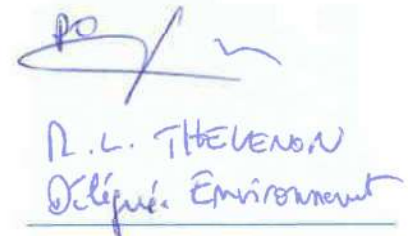 PO
M. L. THEVENON
Déléguée Environnement